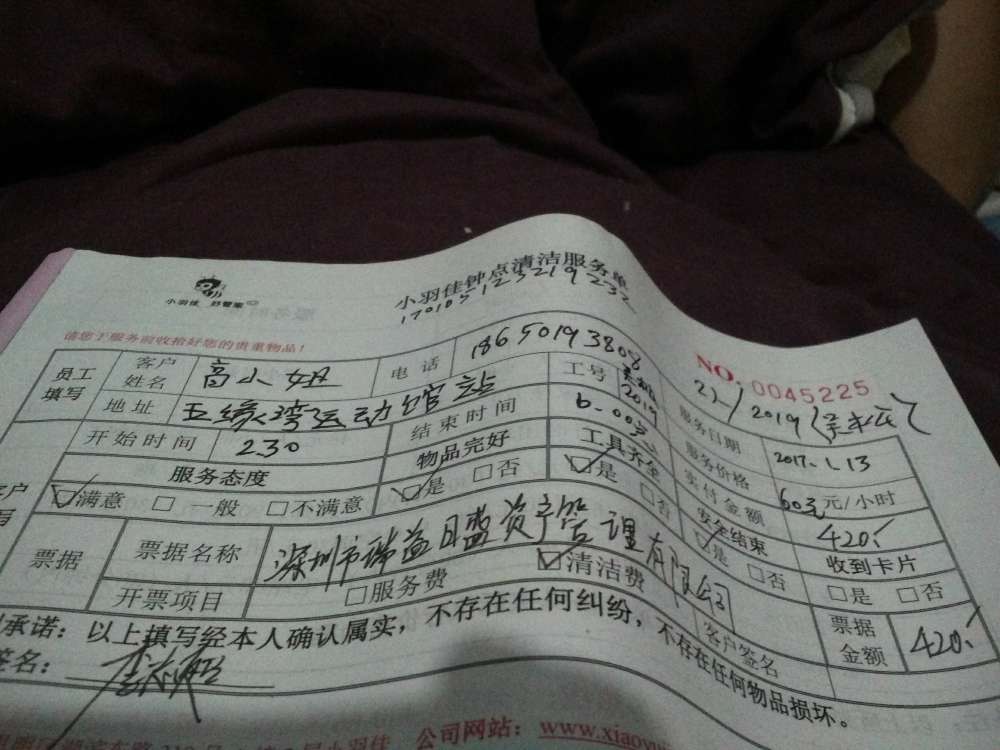 小羽佳 好管家
小羽佳钟点清洁服务单
170105125219232
请您于服务前收拾好您的贵重物品！
NO. 0045225
员工填写 客户姓名 高小姐 电话 18650193808 工号 2019 服务日期 2017.1.13
地址 五缘湾运动馆站 服务价格 60元/小时
开始时间 2.30 结束时间 6.00 实付金额 420.
服务态度 物品完好 工具齐全 安全结束 收到卡片
☑满意 □一般 □不满意 ☑是 □否 ☑是 □否 ☑是 □否 □是 □否
票据 票据名称 深圳市 益日盛资产管理有限公司 票据金额 420.
开票项目 □服务费 ☑清洁费 客户签名
承诺：以上填写经本人确认属实，不存在任何纠纷，不存在任何物品损坏。
签名：
公司网站：www.xiaoyu